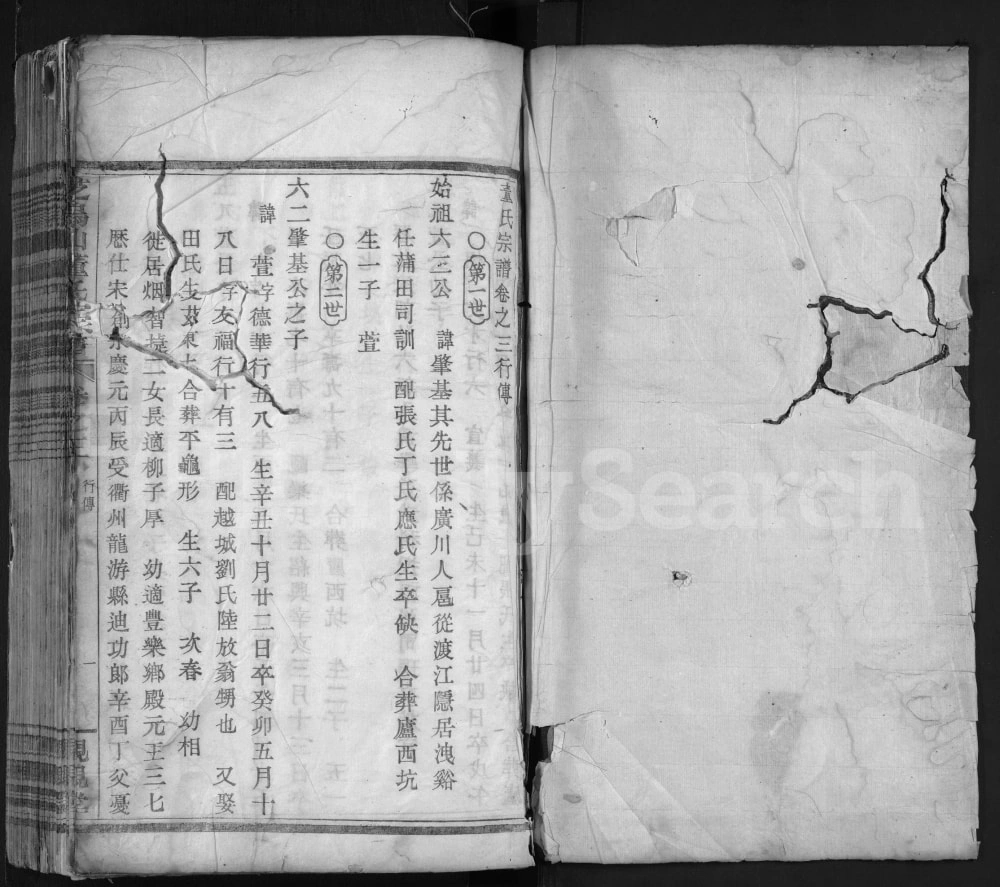 董氏宗譜卷之三行傳
○第一世
始祖六三公 諱肇基其先世係廣川人扈從渡江隱居洩谿
任蒲田司訓 配張氏丁氏應氏生卒缺 合葬廬西坑
生一子 萱
○第二世
六二肇基公之子
諱 萱字德華行五八 生辛丑十月廿二日卒癸卯五月十
八日 字友福行十有三 配越城劉氏陸放翁甥也 又娶
田氏生 合葬平龜形 生六子 次春 幼相
徙居烟 二女長適柳子厚 幼適豐樂鄉殿元王三七
歷仕宋 慶元丙辰受衢州龍游縣迪功郎辛酉丁父憂
行傳
一
FamilySearch